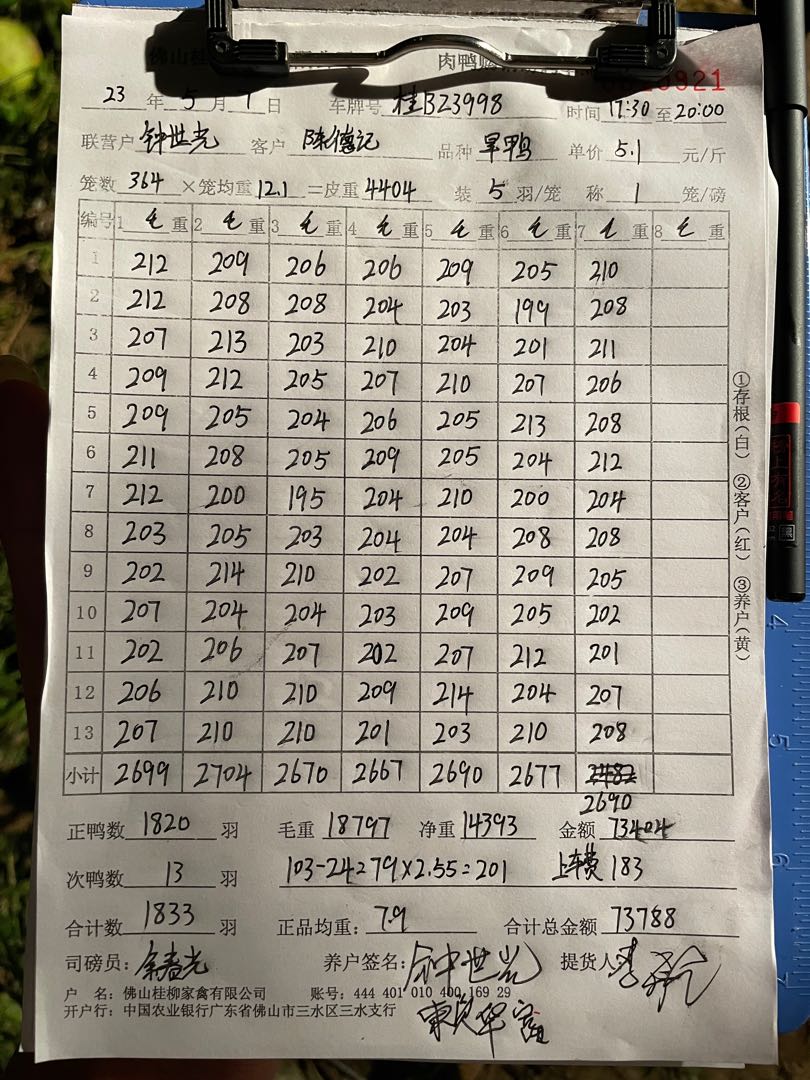 佛山桂 肉鸭
3921
23 年 5 月 1 日 车牌号 桂B23998 时间 17:30 至 20:00
联营户 钟世光 客户 陈德记 品种 旱鸭 单价 5.1 元/斤
笼数 364 ×笼均重 12.1 =皮重 4404 装 5 羽/笼 称 1 笼/磅
编号 1 毛 重 2 毛 重 3 毛 重 4 毛 重 5 毛 重 6 毛 重 7 毛 重 8 毛 重
1 212 209 206 206 209 205 210
2 212 208 208 204 203 199 208
3 207 213 203 210 204 201 211
4 209 212 205 207 210 207 206
5 209 205 204 206 205 213 208
6 211 208 205 209 205 204 212
7 212 200 195 204 210 200 204
8 203 205 203 204 204 208 208
9 202 214 210 202 207 209 205
10 207 204 204 203 209 205 202
11 202 206 207 202 207 212 201
12 206 210 210 209 214 204 207
13 207 210 210 201 203 210 208
小计 2699 2704 2670 2667 2690 2677 2482
2690
正鸭数 1820 羽 毛重 18797 净重 14393 金额 73404
次鸭数 13 羽 103-24=79×2.55=201 上车费 183
合计数 1833 羽 正品均重: 7.9 合计总金额 73788
司磅员: 余春光 养户签名: 钟世光 提货人
户 名: 佛山桂柳家禽有限公司 账号: 444 401 010 400 169 29
开户行: 中国农业银行广东省佛山市三水区三水支行
①存根(白) ②客户(红) ③养户(黄)
4
5
6
7